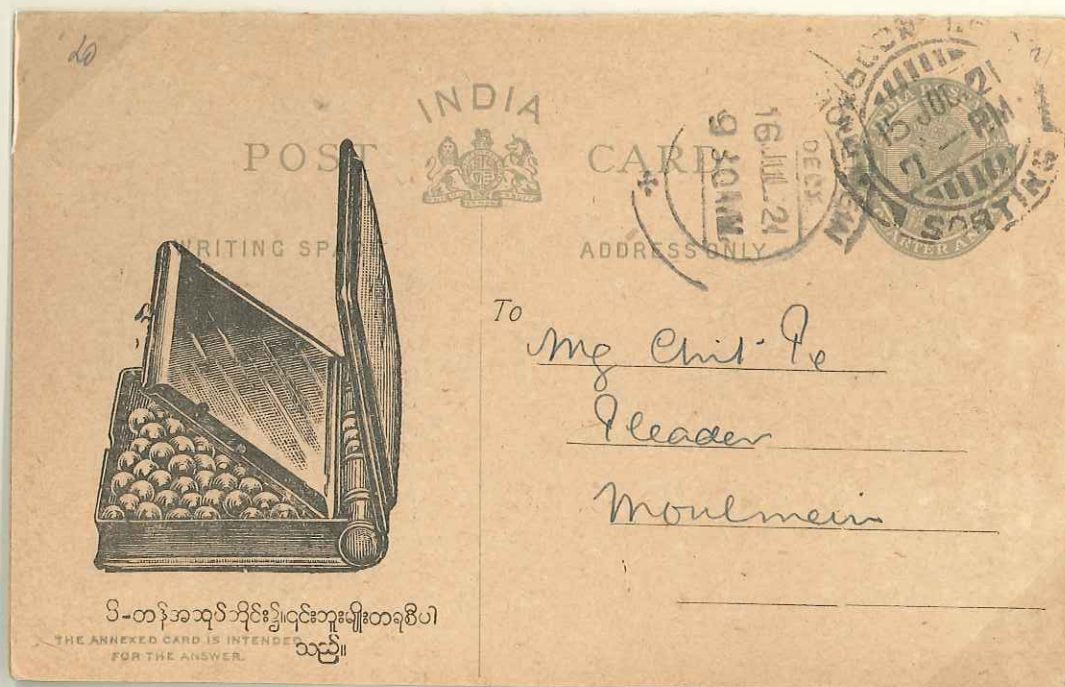 20
INDIA
POST CARD
WRITING SPACE
ADDRESS ONLY
16 JUL. 21
9 30 AM
DELY
15 JUL 21
7 - PM
SORTING
To
Mg Chit Pe
Pleader
Moulmein
၆-တန်အဆုပ်ဘိုင်း၌၊၎င်းဘူးမျိုးတခုစီပါ
သည်။
THE ANNEXED CARD IS INTENDED
FOR THE ANSWER.